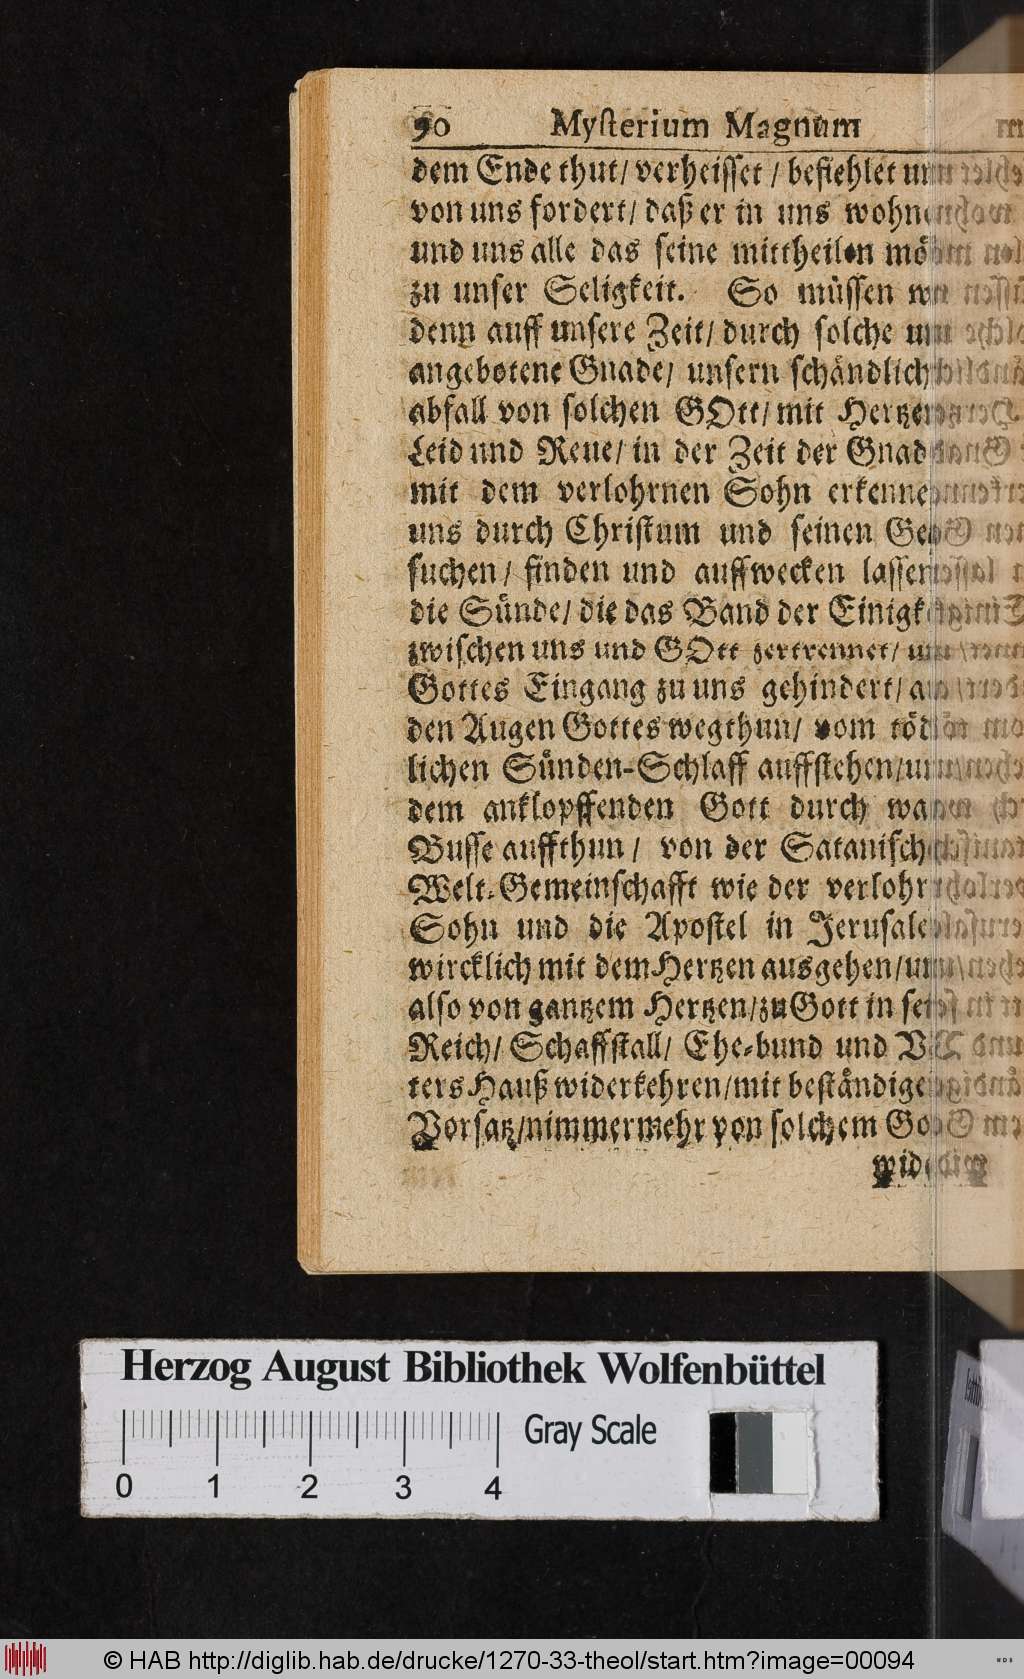 90 Mysterium Magnum
dem Ende thut/ verheisset / befiehlet
von uns fordert/ daß er in uns
und uns alle das seine mittheilen
zu unser Seligkeit. So müssen
denn auff unsere Zeit/ durch solche
angebotene Gnade/ unsern
abfall von solchen GOtt/ mit
Leid und Reue/ in der Zeit der
mit dem verlohrnen Sohn
uns durch Christum und seinen
suchen/ finden und auffwecken
die Sünde/ die das Band der
zwischen uns und GOtt zertrennet/
Gottes Eingang zu uns gehindert/
den Augen Gottes wegthun/ vom
lichen Sünden-Schlaff auffstehen/
dem anklopffenden Gott durch
Busse auffthun/ von der
Welt-Gemeinschafft wie der
Sohn und die Apostel in
wircklich mit dem Hertzen ausgehen/
also von gantzem Hertzen/ zu Gott in
Reich/ Schaffstall/ Ehe-bund und
ters Hauß widerkehren/ mit
Vorsatz/ nimmermehr von solchem
Herzog August Bibliothek Wolfenbüttel
Gray Scale
0 1 2 3 4
© HAB http://diglib.hab.de/drucke/1270-33-theol/start.htm?image=00094